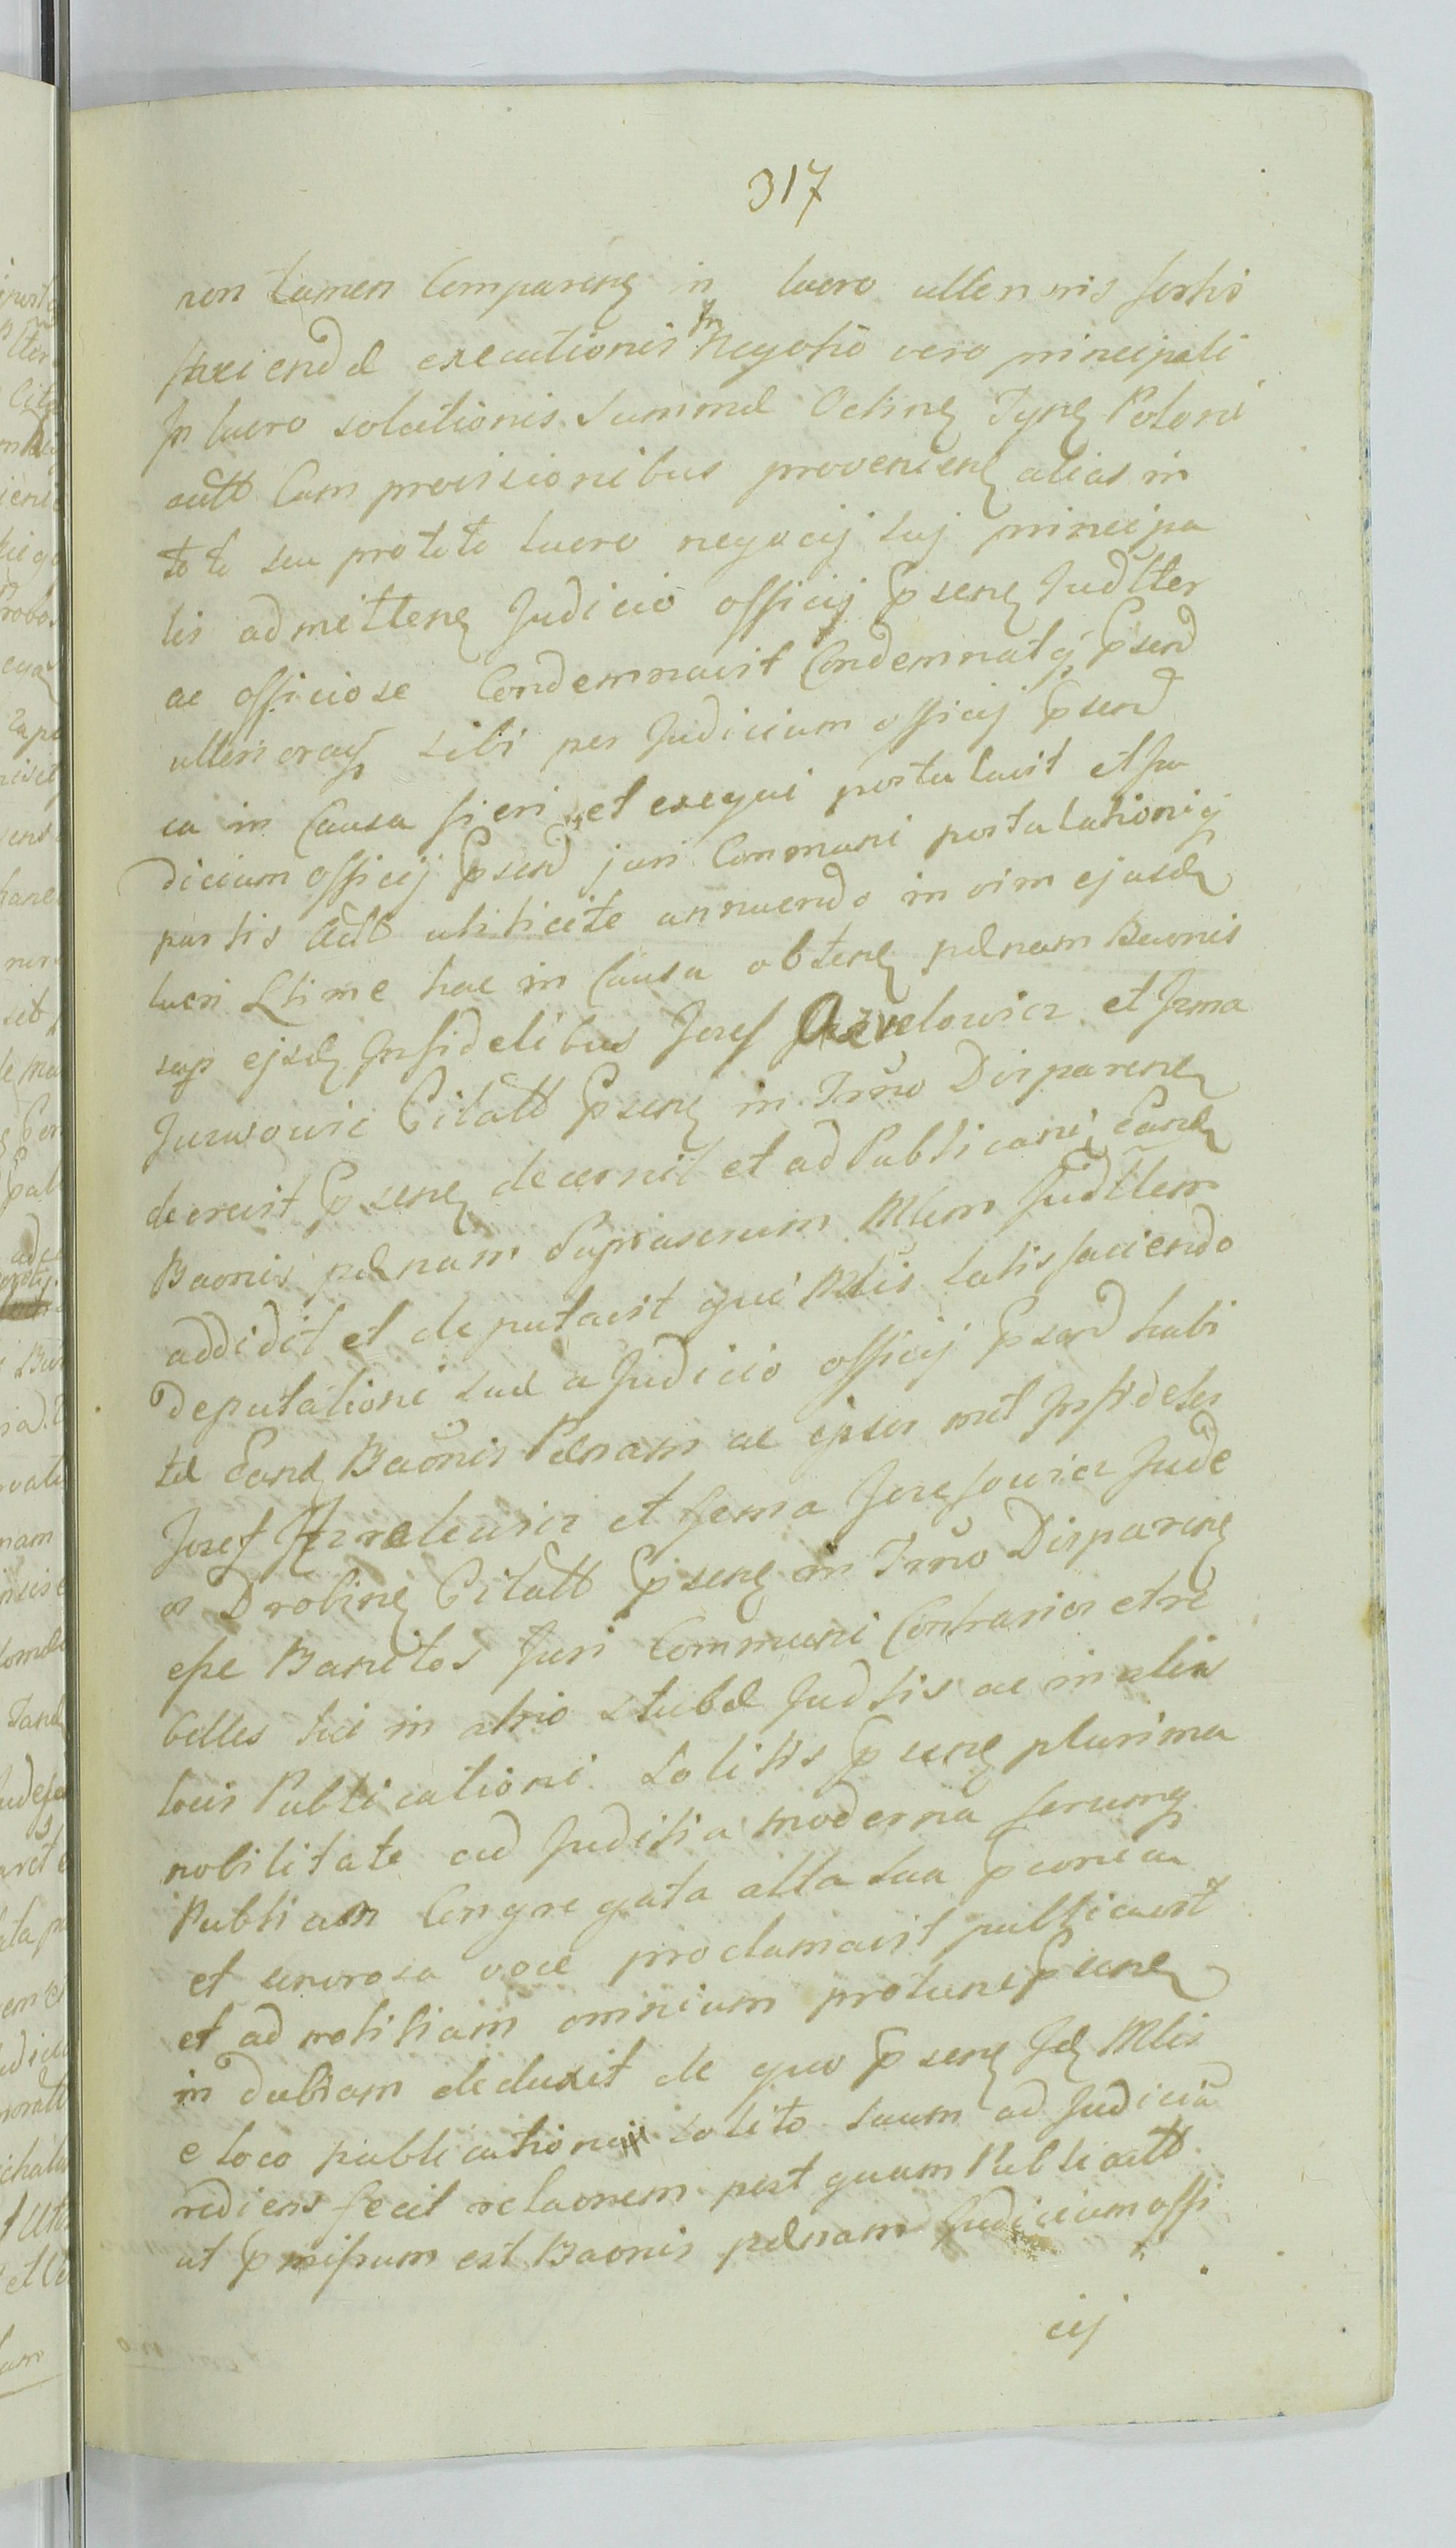 317
non tamen Comparenꝫ in lucro ulterioris fortis
faciendæ executionis In Negotio vero principali
In lucro solutionis Summæ Octinꝫ Tynꝫ Poloni
autt Cum provisionibus provenienꝫ alias in
toto seu pro toto lucro negocij suj principa
lis admittenꝫ Judicio officij ꝑsenꝫ Judltter
ac officiose Condemnavit Condemnatqꝫ ꝑsend
ulteriorasqꝫ sibi per Judicium officij ꝑsend
ea in Causa fieri et exequi postulavit et Ju
dicium officij ꝑsend juri Communi postulationiqꝫ
partis Actt uti licite annuendo in vim ejusdꝫ
lucri Ltime hac in Causa obtenꝫ pænam Baonis
sup ejsdꝫ Infidelibus Josef Azrelowicz et Jzma
Juzwowic Citatt ꝑsenꝫ in Trno Disparenꝫ
decrevit ꝑsenꝫ decernit et ad Publicanꝫ Eandꝫ
Baonis pænam Supra Mlem Judtlem
addidit et deputavit qui Mlis satisfaciendo
Deputationi suæ a Judicio officij ꝑsend habi
tæ Eandꝫ Baonis Pænam ac ipsos met Infideles
Josef Azrelewicz et Jzma Jozefowicz Jude
os Drobinꝫ Citatt ꝑsenꝫ in Trno Disparenꝫ
esse Banitos Juri Communi Contrarios et re
belles hic in atrio Stubæ Judlis ac in aliis
locis Publicationi Solitis ꝑsenꝫ plurima
nobilitate ad Juditia moderna forumqꝫ
Publicum Congregata alta sua ꝑconica
et sonorosa voce proclamavit publicavit
et ad notitiam omnium protunc ꝑsenꝫ
in dubiam deduxit de quo ꝑsenꝫ Idꝫ Mlis
e loco publicationis solito suum ad Judicia
rediens fecit relaonem post quam Publicatt
ut ꝑmissum est Baonis pænam Judicium offi
cij